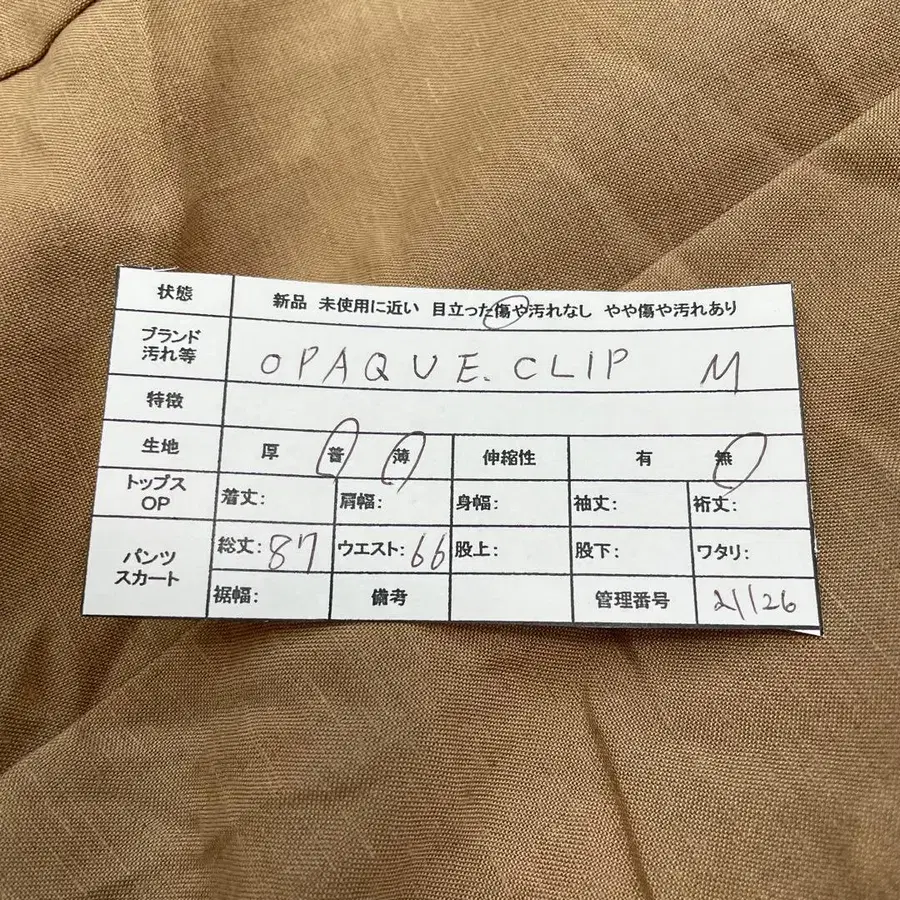 状態 新品 未使用に近い 目立った傷や汚れなし やや傷や汚れあり
ブランド
汚れ等 OPAQUE.CLIP M
特徴
生地 厚 普 薄 伸縮性 有 無
トップス
OP 着丈: 肩幅: 身幅: 袖丈: 裄丈:
パンツ
スカート 総丈:87 ウエスト:66 股上: 股下: ワタリ:
裾幅: 備考 管理番号 21126